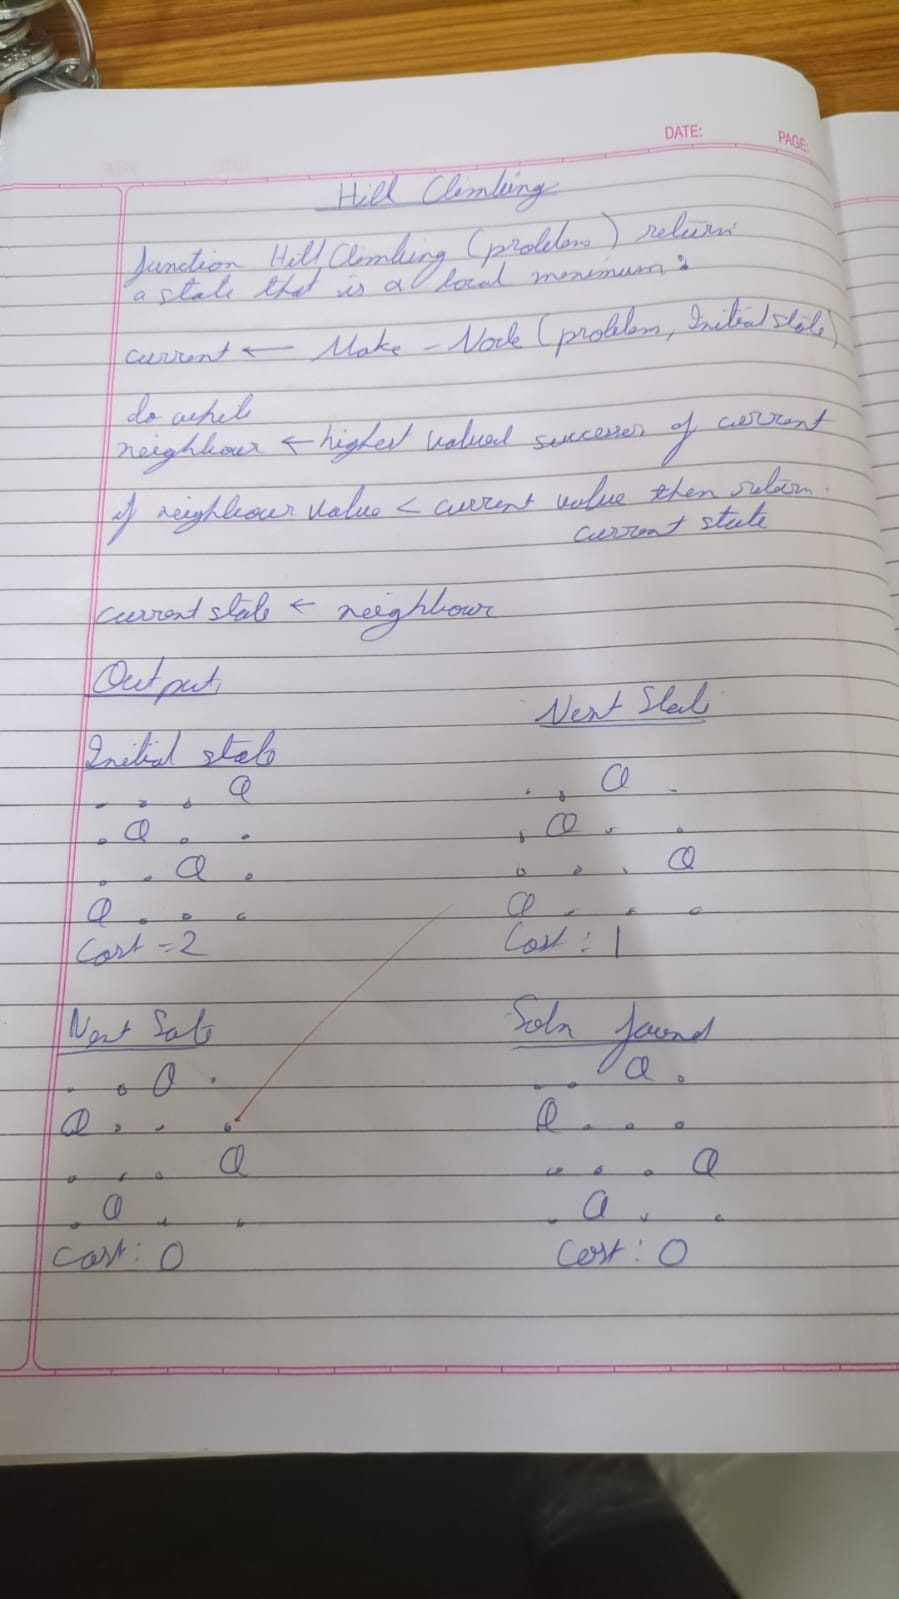 DATE:
PAGE:
Hill Climbing
function Hill Climbing (problem) return
a state that is a local minimum:
current ← Make - Node (problem, Initial state)
do while
neighbour ← highest valued successor of current
if neighbour value < current value then return
current state
current state ← neighbour
Output
Next State
Initial state
. . . Q
. . Q .
. Q . .
. Q . .
. . Q .
. . . Q
Q . . .
Q . . .
Cost = 2
Cost : 1
Next Sate
Soln found
. . Q .
. . Q .
Q . . .
Q . . .
. . . Q
. . . Q
. Q . .
. Q . .
Cost : 0
Cost : 0